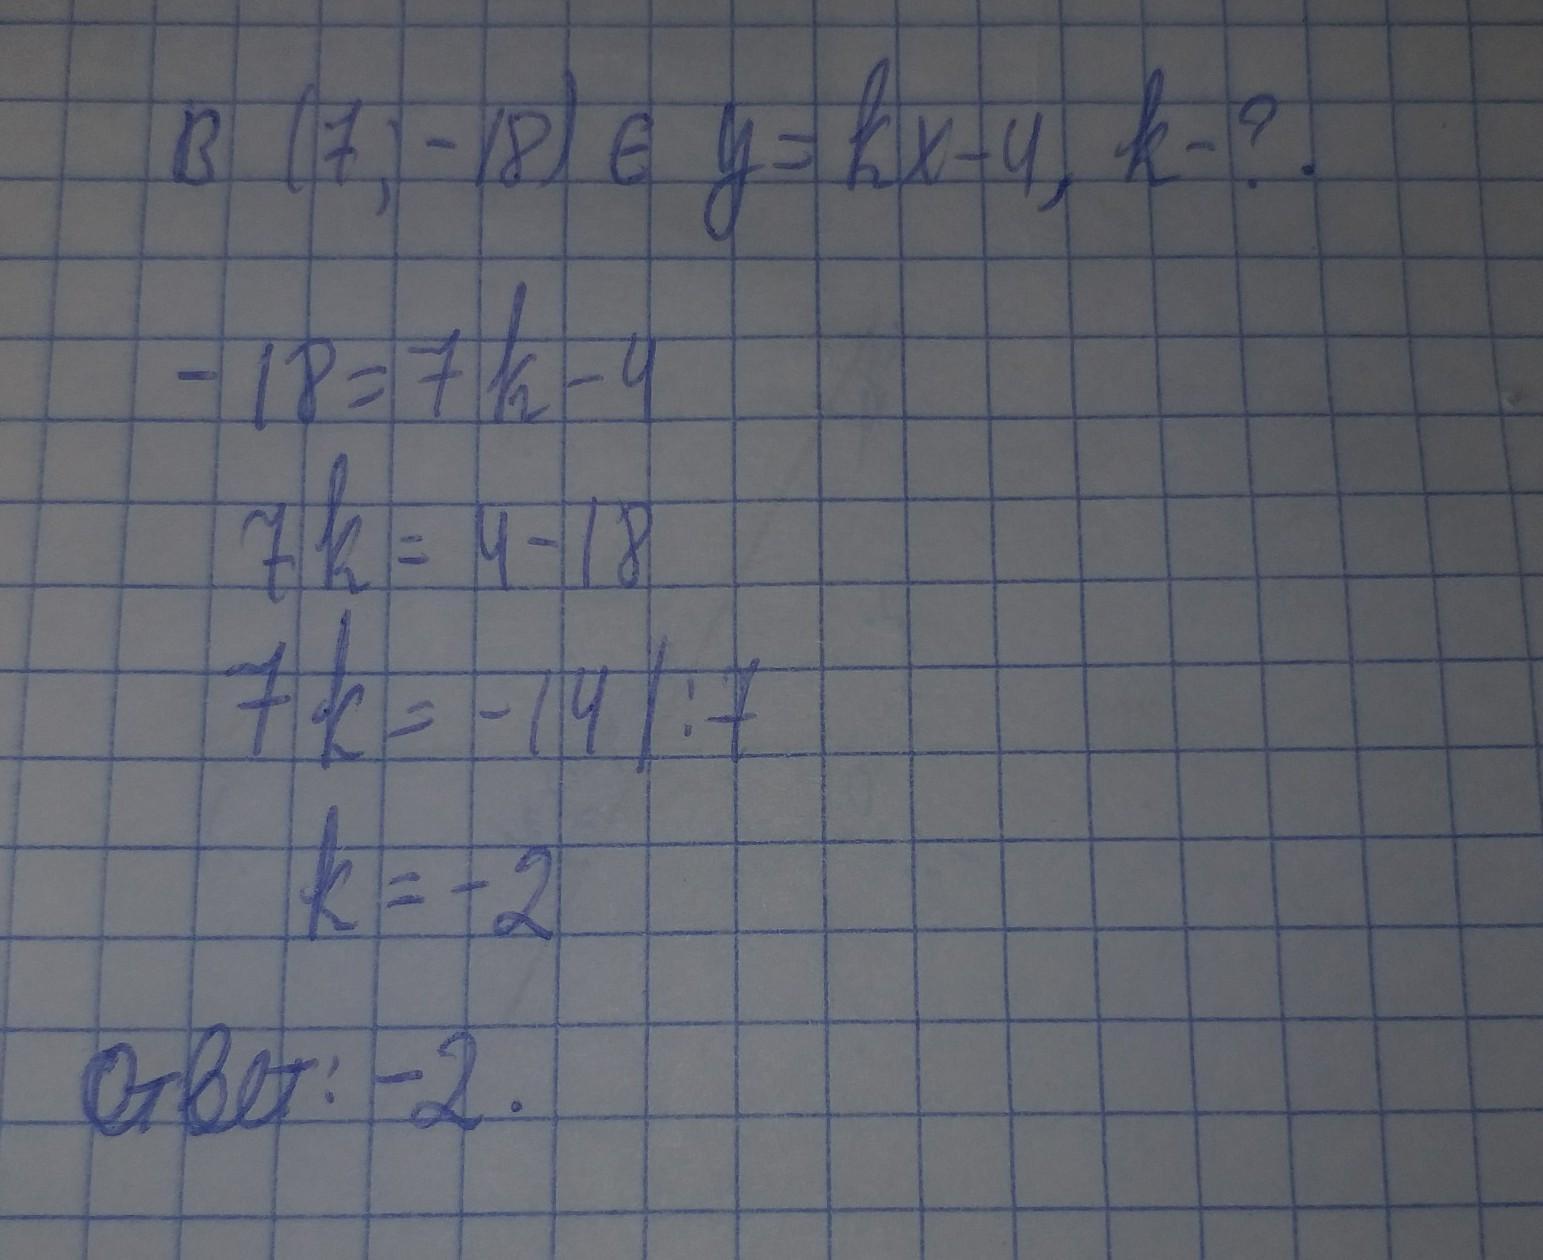 B (7; -18) ∈ y = kx - 4, k - ?.
-18 = 7k - 4
7k = 4 - 18
7k = -14 | : 7
k = -2
Ответ: -2.